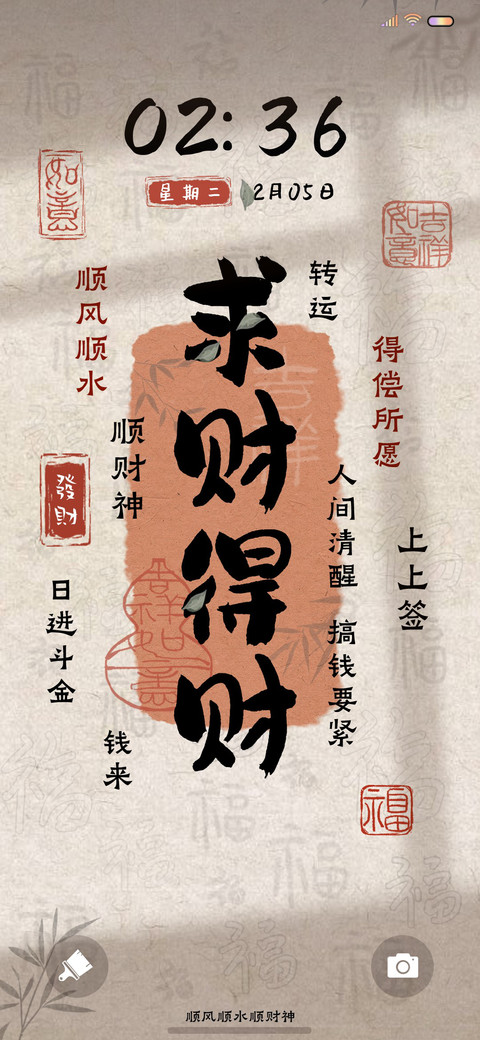 02:36
星期二 2月05日
如意
吉祥如意
转运
顺风顺水
求财得财
得偿所愿
顺财神
吉祥
人间清醒 搞钱要紧
發財
上上签
吉祥如意
日进斗金
钱来
福
福
福
福
福
顺风顺水顺财神